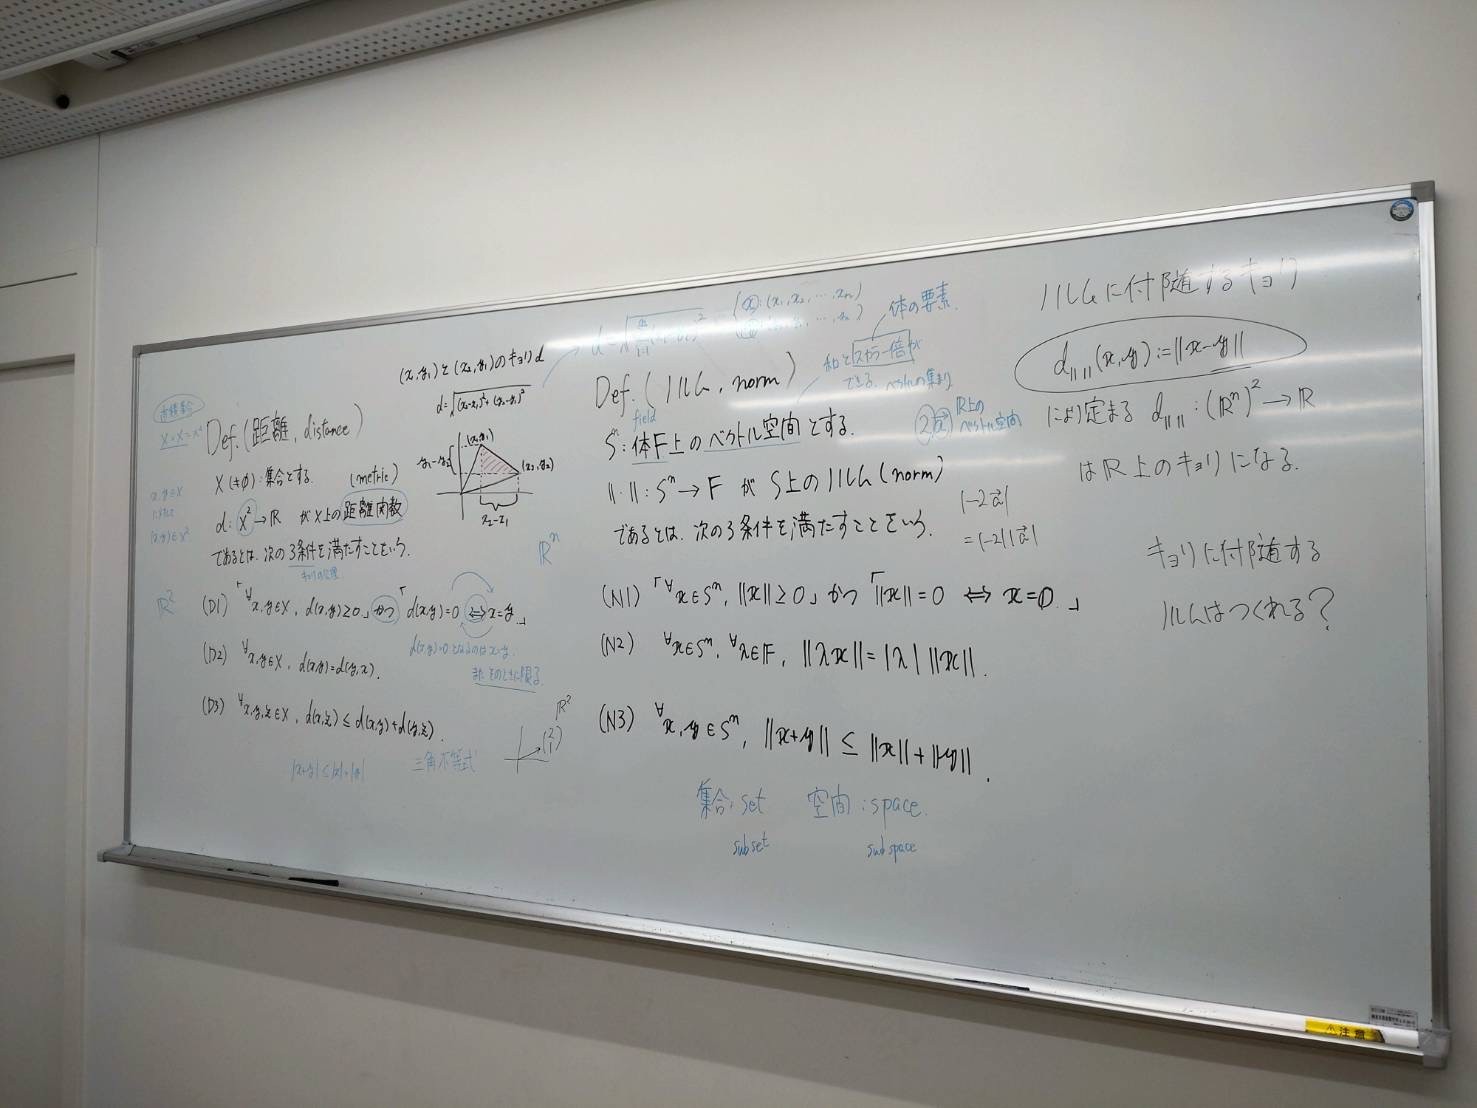 直積集合
X×X=X²
Def.(距離, distance)
X(≠φ):集合とする. (metric)
d: X²→ℝ が X上の距離関数
であるとは, 次の3条件を満たすことをいう.
x,y∈X
(x,y)∈X²
ℝ²
(D1) 「∀x,y∈X, d(x,y)≥0」かつ「d(x,y)=0 ⇔ x=y.」
d(x,y)=0となるのはx=y
またそのときに限る.
(D2) ∀x,y∈X, d(x,y)=d(y,x).
(D3) ∀x,y,z∈X, d(x,z)≤d(x,y)+d(y,z).
|x+y|≤|x|+|y|
三角不等式
ℝ²
(2 1)
(x₁,y₁)と(x₂,y₂)のキョリd
d=√(x₂-x₁)²+(y₂-y₁)²
(x₁,y₁)
y₁-y₂
(x₂,y₂)
x₂-x₁
ℝⁿ
𝕩:(x₁,x₂,…,xₙ)
体の要素.
和とスカラー倍が
できる. ベクトルの集まり
Def.(ノルム, norm)
field
Sⁿ:体F上のベクトル空間とする.
ℝ上の
ベクトル空間
‖・‖:Sⁿ→F が S上のノルム(norm)
であるとは, 次の3条件を満たすことをいう.
|-2a⃗|
=|-2||a⃗|
(N1)「∀𝕩∈Sⁿ, ‖𝕩‖≥0」かつ「‖𝕩‖=0 ⇔ 𝕩=𝟘.」
(N2) ∀𝕩∈Sⁿ, ∀λ∈F, ‖λ𝕩‖=|λ|‖𝕩‖.
(N3) ∀𝕩,𝕪∈Sⁿ, ‖𝕩+𝕪‖≤‖𝕩‖+‖𝕪‖.
集合:set 空間:space.
subset subspace
ノルムに付随するキョリ
d‖‖(𝕩,𝕪):=‖𝕩-𝕪‖
により定まる d‖‖:(ℝⁿ)²→ℝ
はℝ上のキョリになる.
キョリに付随する
ノルムはつくれる?
⚠注意